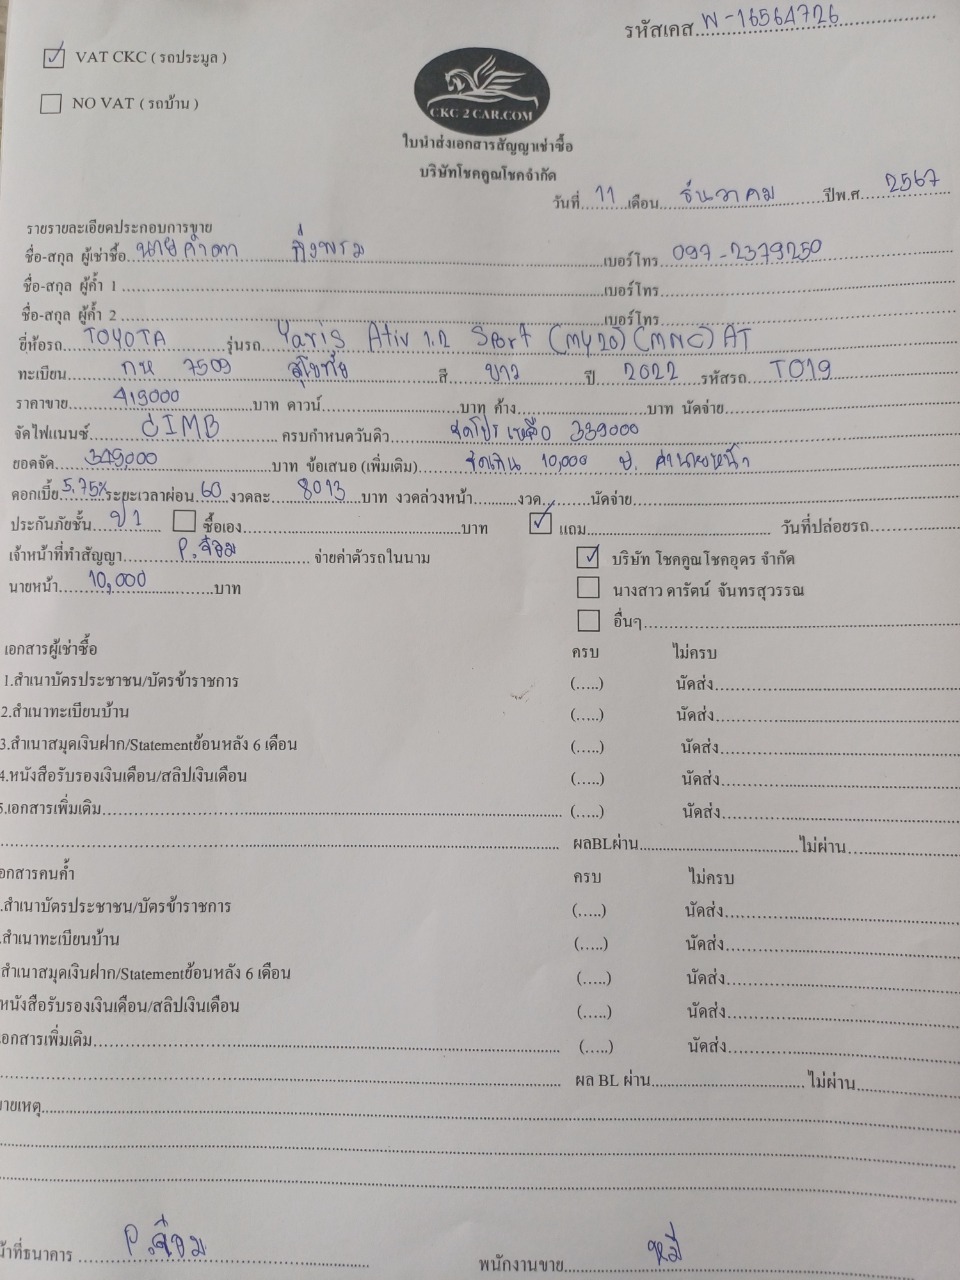 รหัสเคส W-16564726
☑ VAT CKC ( รถประมูล )
☐ NO VAT ( รถบ้าน )
CKC 2 CAR.COM
ใบนำส่งเอกสารสัญญาเช่าซื้อ
บริษัทโชคคูณโชคจำกัด
วันที่ 11 เดือน ธันวาคม ปีพ.ศ. 2567
รายรายละเอียดประกอบการขาย
ชื่อ-สกุล ผู้เช่าซื้อ นายคำตา กิ่งพรม เบอร์โทร 097-2379250
ชื่อ-สกุล ผู้ค้ำ 1 เบอร์โทร
ชื่อ-สกุล ผู้ค้ำ 2 เบอร์โทร
ยี่ห้อรถ TOYOTA รุ่นรถ Yaris Ativ 1.2 Sport (MY20) (MNC) AT
ทะเบียน กห 7509 สุโขทัย สี ขาว ปี 2022 รหัสรถ T019
ราคาขาย 419000 บาท ดาวน์ บาท ค้าง บาท นัดจ่าย
จัดไฟแนนซ์ CIMB ครบกำหนดวันดิว รถโปรเหลือ 339000
ยอดจัด 349,000 บาท ข้อเสนอ (เพิ่มเติม) จัดเกิน 10,000 บ. ค่านายหน้า
ดอกเบี้ย 5.75% ระยะเวลาผ่อน 60 งวดละ 8013 บาท งวดล่วงหน้า งวด นัดจ่าย
ประกันภัยชั้น ป1 ☐ ซื้อเอง บาท ☑ แถม วันที่ปล่อยรถ
เจ้าหน้าที่ทำสัญญา P.จ๋อม จ่ายค่าตัวรถในนาม ☑ บริษัท โชคคูณโชคอุดร จำกัด
นายหน้า 10,000 บาท ☐ นางสาว ดารัตน์ จันทรสุวรรณ
☐ อื่นๆ
เอกสารผู้เช่าซื้อ ครบ ไม่ครบ
1.สำเนาบัตรประชาชน/บัตรข้าราชการ (.....) นัดส่ง
2.สำเนาทะเบียนบ้าน (.....) นัดส่ง
3.สำเนาสมุดเงินฝาก/Statementย้อนหลัง 6 เดือน (.....) นัดส่ง
4.หนังสือรับรองเงินเดือน/สลิปเงินเดือน (.....) นัดส่ง
5.เอกสารเพิ่มเติม (.....) นัดส่ง
ผลBLผ่าน ไม่ผ่าน
อกสารคนค้ำ ครบ ไม่ครบ
.สำเนาบัตรประชาชน/บัตรข้าราชการ (.....) นัดส่ง
.สำเนาทะเบียนบ้าน (.....) นัดส่ง
สำเนาสมุดเงินฝาก/Statementย้อนหลัง 6 เดือน (.....) นัดส่ง
หนังสือรับรองเงินเดือน/สลิปเงินเดือน (.....) นัดส่ง
อกสารเพิ่มเติม (.....) นัดส่ง
ผล BL ผ่าน ไม่ผ่าน
ายเหตุ
น้าที่ธนาคาร P.จ๋อม พนักงานขาย หมี